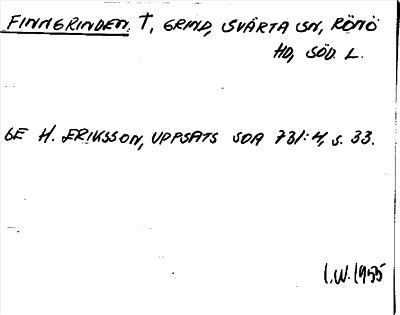 FINNGRINDEN, †, GRIND, SVÄRTA SN, RÖNÖ
HD, SÖD. L.
SE H. ERIKSSON, UPPSATS SOA 731:4, s. 33.
I.W. 1955